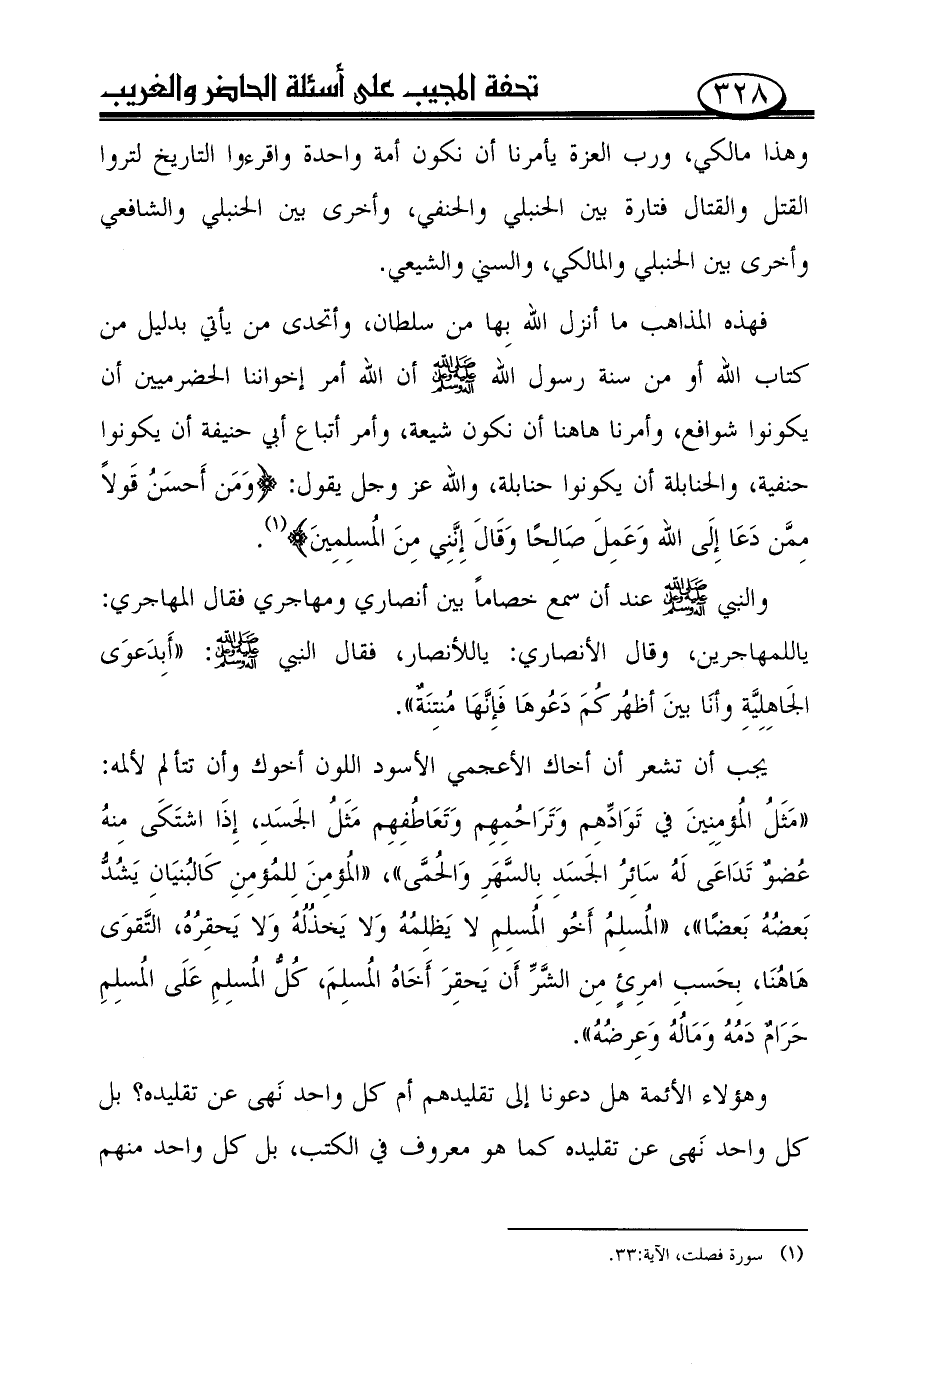 ٣٢٨ تحفة المجيب على أسئلة الحاضر والغريب
وهذا مالكي، ورب العزة يأمرنا أن نكون أمة واحدة واقرءوا التاريخ لتروا
القتل والقتال فتارة بين الحنبلي والحنفي، وأخرى بين الحنبلي والشافعي
وأخرى بين الحنبلي والمالكي، والسني والشيعي.
فهذه المذاهب ما أنزل الله بِها من سلطان، وأتحدى من يأتي بدليل من
كتاب الله أو من سنة رسول الله ﷺ أن الله أمر إخواننا الحضرميين أن
يكونوا شوافع، وأمرنا هاهنا أن نكون شيعة، وأمر أتباع أبي حنيفة أن يكونوا
حنفية، والحنابلة أن يكونوا حنابلة، والله عز وجل يقول: ﴿وَمَن أَحسَنُ قَولاً
مِمَّن دَعَا إِلَى الله وَعَمِلَ صَالِحًا وَقَالَ إِنَّنِي مِنَ الْمُسلِمِينَ﴾(١).
والنبي ﷺ عند أن سمع خصاماً بين أنصاري ومهاجري فقال المهاجري:
ياللمهاجرين، وقال الأنصاري: ياللأنصار، فقال النبي ﷺ: «أَبِدَعوَى
الجَاهِلِيَّةِ وأنَا بينَ أظهُرِكُم دَعُوهَا فَإِنَّهَا مُنتِنَةٌ».
يجب أن تشعر أن أخاك الأعجمي الأسود اللون أخوك وأن تتألم لألمه:
«مَثَلُ الْمُؤمِنِينَ في تَوَادِّهِم وَتَرَاحُمِهِم وَتَعَاطُفِهِم مَثَلُ الجَسَدِ، إِذَا اشتَكَى مِنهُ
عُضوٌ تَدَاعَى لَهُ سَائِرُ الجَسَدِ بِالسَّهَرِ وَالْحُمَّى»، «الْمُؤمِنَ لِلمُؤمِنِ كَالبُنيَانِ يَشُدُّ
بَعضُهُ بَعضًا»، «الْمُسلِمُ أَخُو الْمُسلِمِ لا يَظلِمُهُ وَلا يَخذُلُهُ وَلا يَحقِرُهُ، التَّقوَى
هَاهُنَا، بِحَسبِ امرِئٍ مِن الشَّرِّ أَن يَحقِرَ أَخَاهُ الْمُسلِمَ، كُلُّ الْمُسلِمِ عَلَى الْمُسلِمِ
حَرَامٌ دَمُهُ وَمَالُهُ وَعِرضُهُ».
وهؤلاء الأئمة هل دعونا إلى تقليدهم أم كل واحد نَهى عن تقليده؟ بل
كل واحد نَهى عن تقليده كما هو معروف في الكتب، بل كل واحد منهم
(١) سورة فصلت، الآية:٣٣.